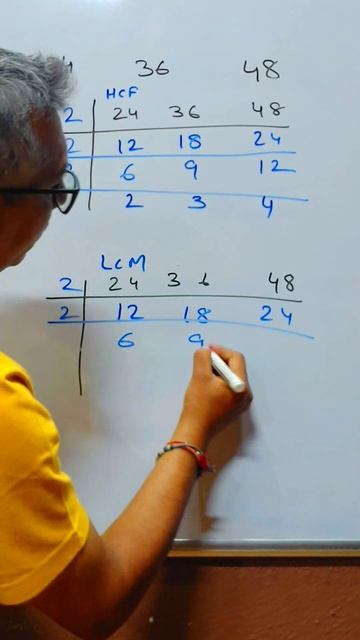 4 36 48
HCF
2 24 36 48
2 12 18 24
6 9 12
2 3 4
LCM
2 24 36 48
2 12 18 24
6 9